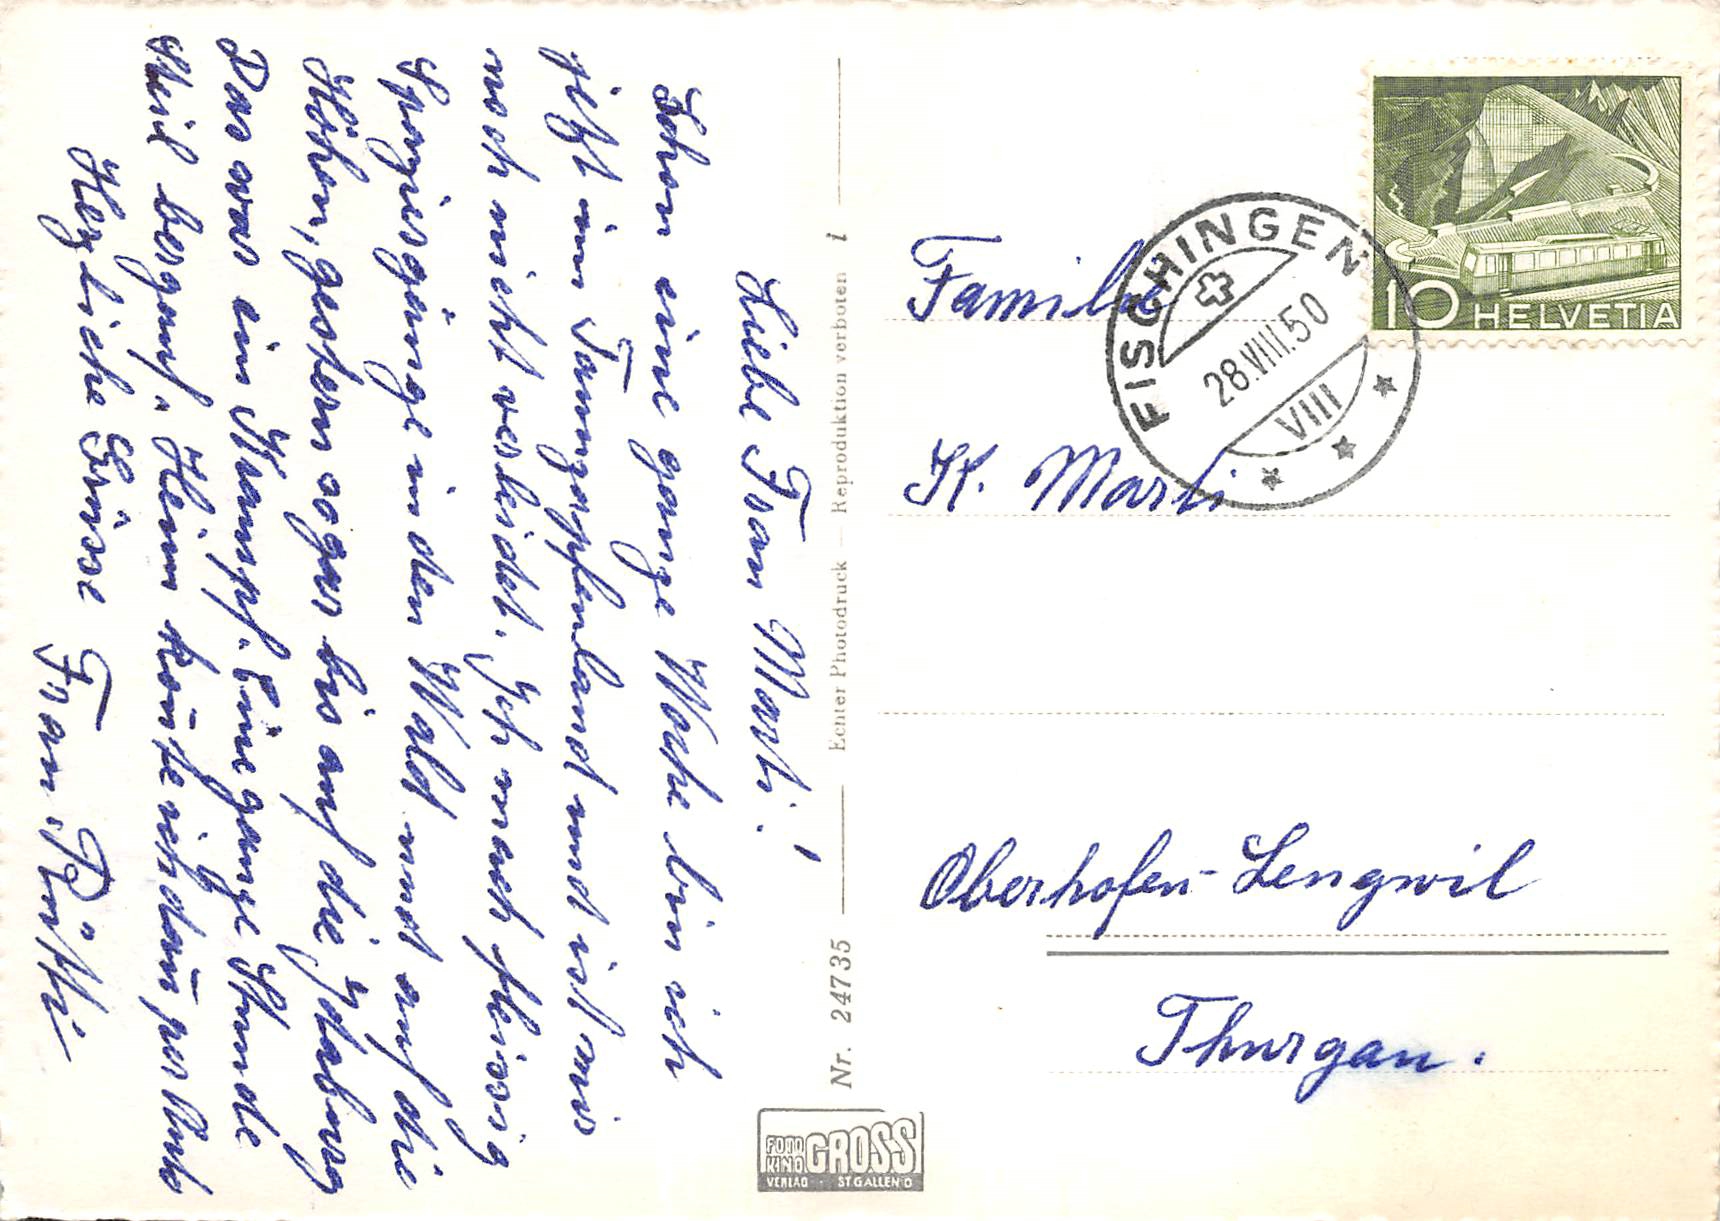 Liebe Frau Marti!
Schon eine ganze Woche bin ich
jetzt im Tannzapfenland und ist mir
noch nicht verleidet. Ich mach fleissig
Spaziergänge in den Wald und auf die
Höhen, gestern sogar bis auf die Iddaburg
Das war ein Krampf. Eine ganze Stunde
steil bergauf. Heim konnte ich dann per Auto
Herzliche Grüsse
Frau Rütti
Echter Photodruck — Reproduktion verboten
Nr. 24735
FOTO
KINO
GROSS
VERLAG ST GALLEN O
FISCHINGEN
28.VIII.50
VIII
10 HELVETIA
Familie
K. Marti
Oberhofen-Lengwil
Thurgau.